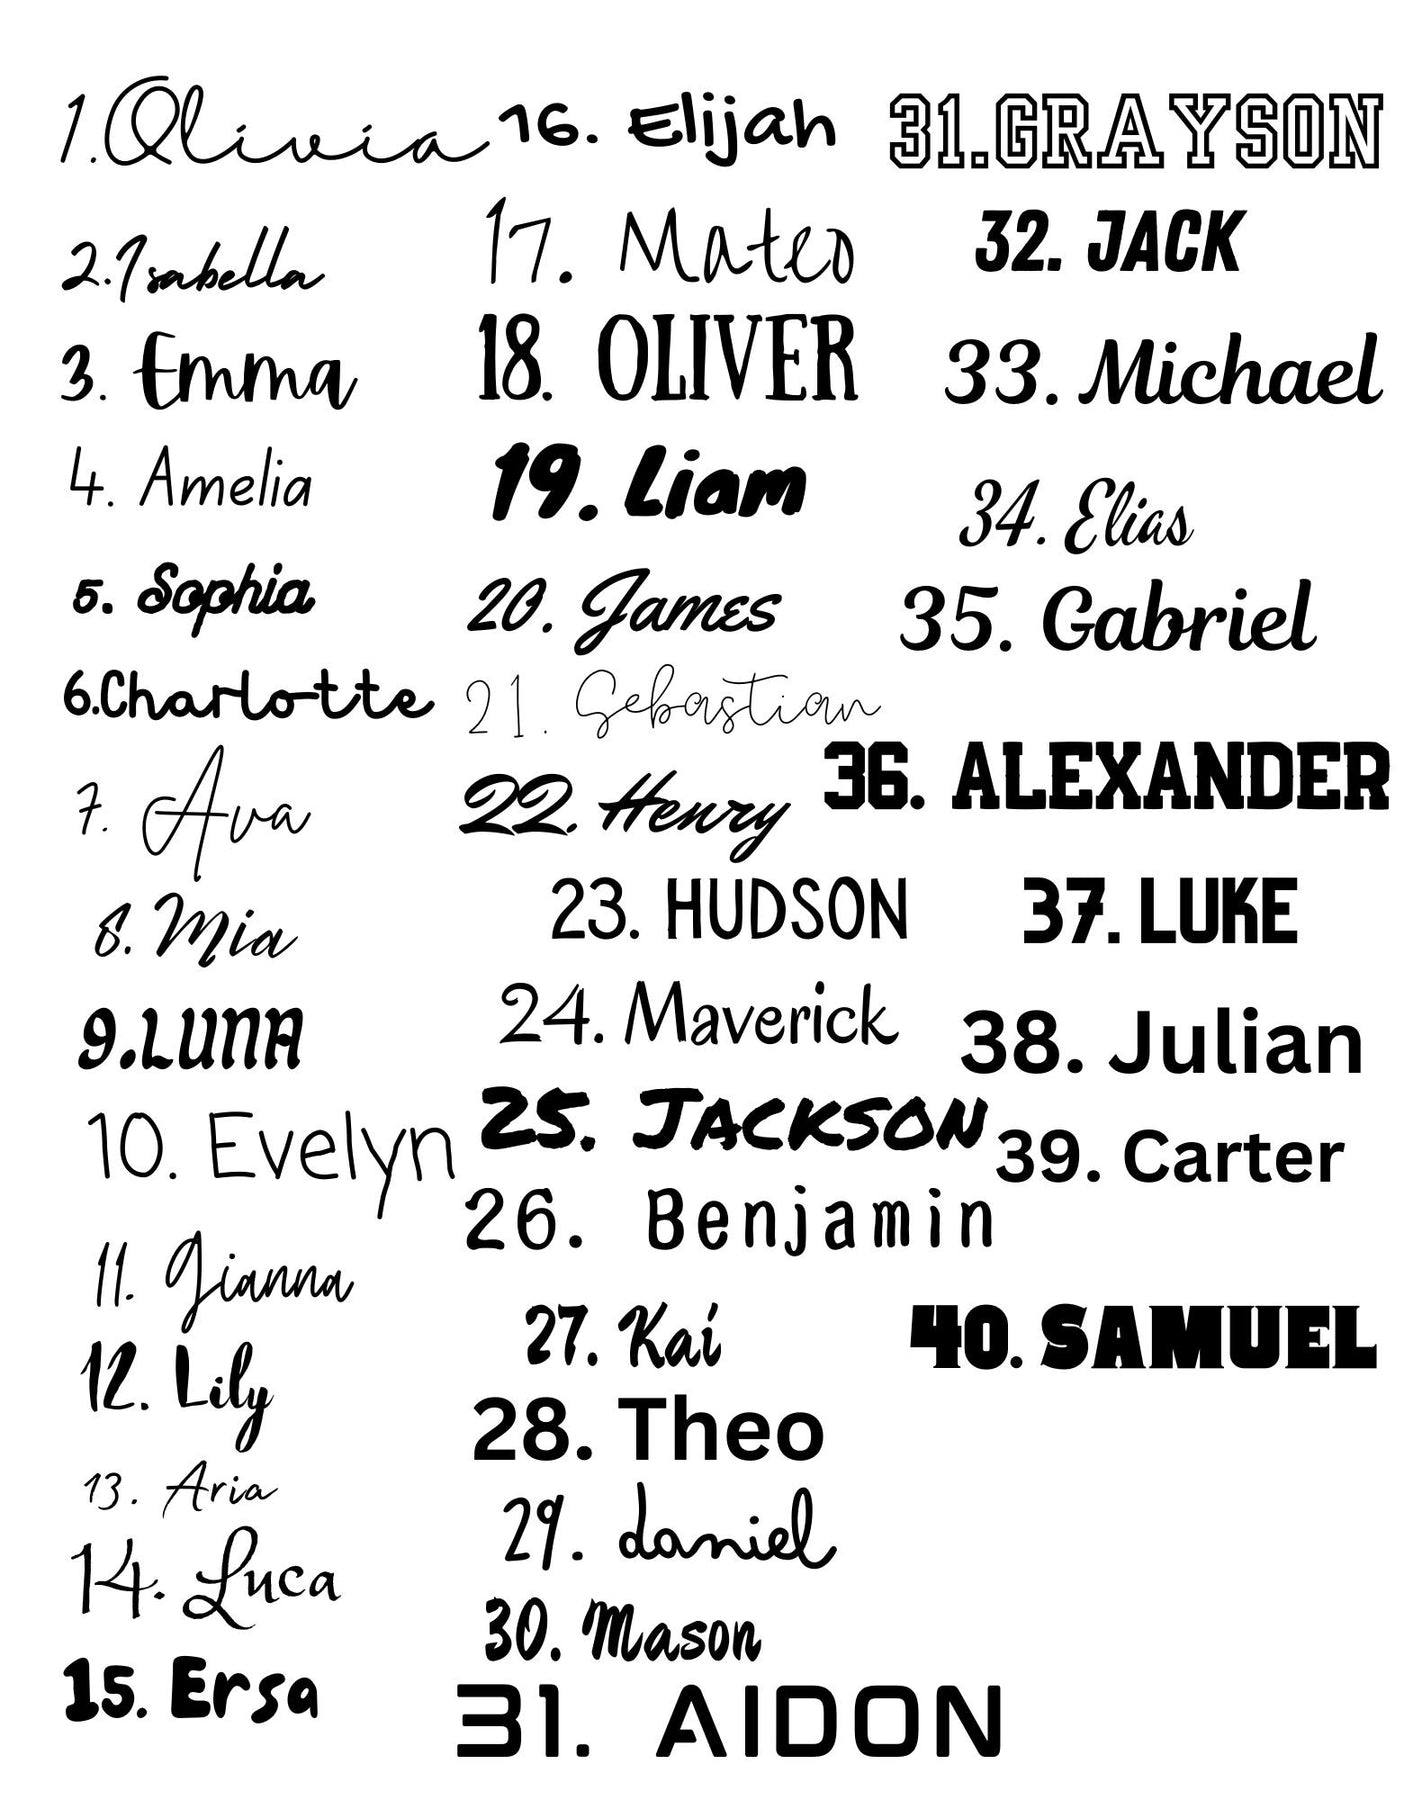 1.Olivia
2.Isabella
3. Emma
4. Amelia
5. Sophia
6.Charlotte
7. Ava
8. Mia
9.LUNA
10. Evelyn
11. Gianna
12. Lily
13. Aria
14. Luca
15. Ersa
16. Elijah
17. Mateo
18. OLIVER
19. Liam
20. James
21. Sebastian
22. Henry
23. HUDSON
24. Maverick
25. JACKSON
26. Benjamin
27. Kai
28. Theo
29. daniel
30. Mason
31. AIDON
31.GRAYSON
32. JACK
33. Michael
34. Elias
35. Gabriel
36. ALEXANDER
37. LUKE
38. Julian
39. Carter
40. SAMUEL